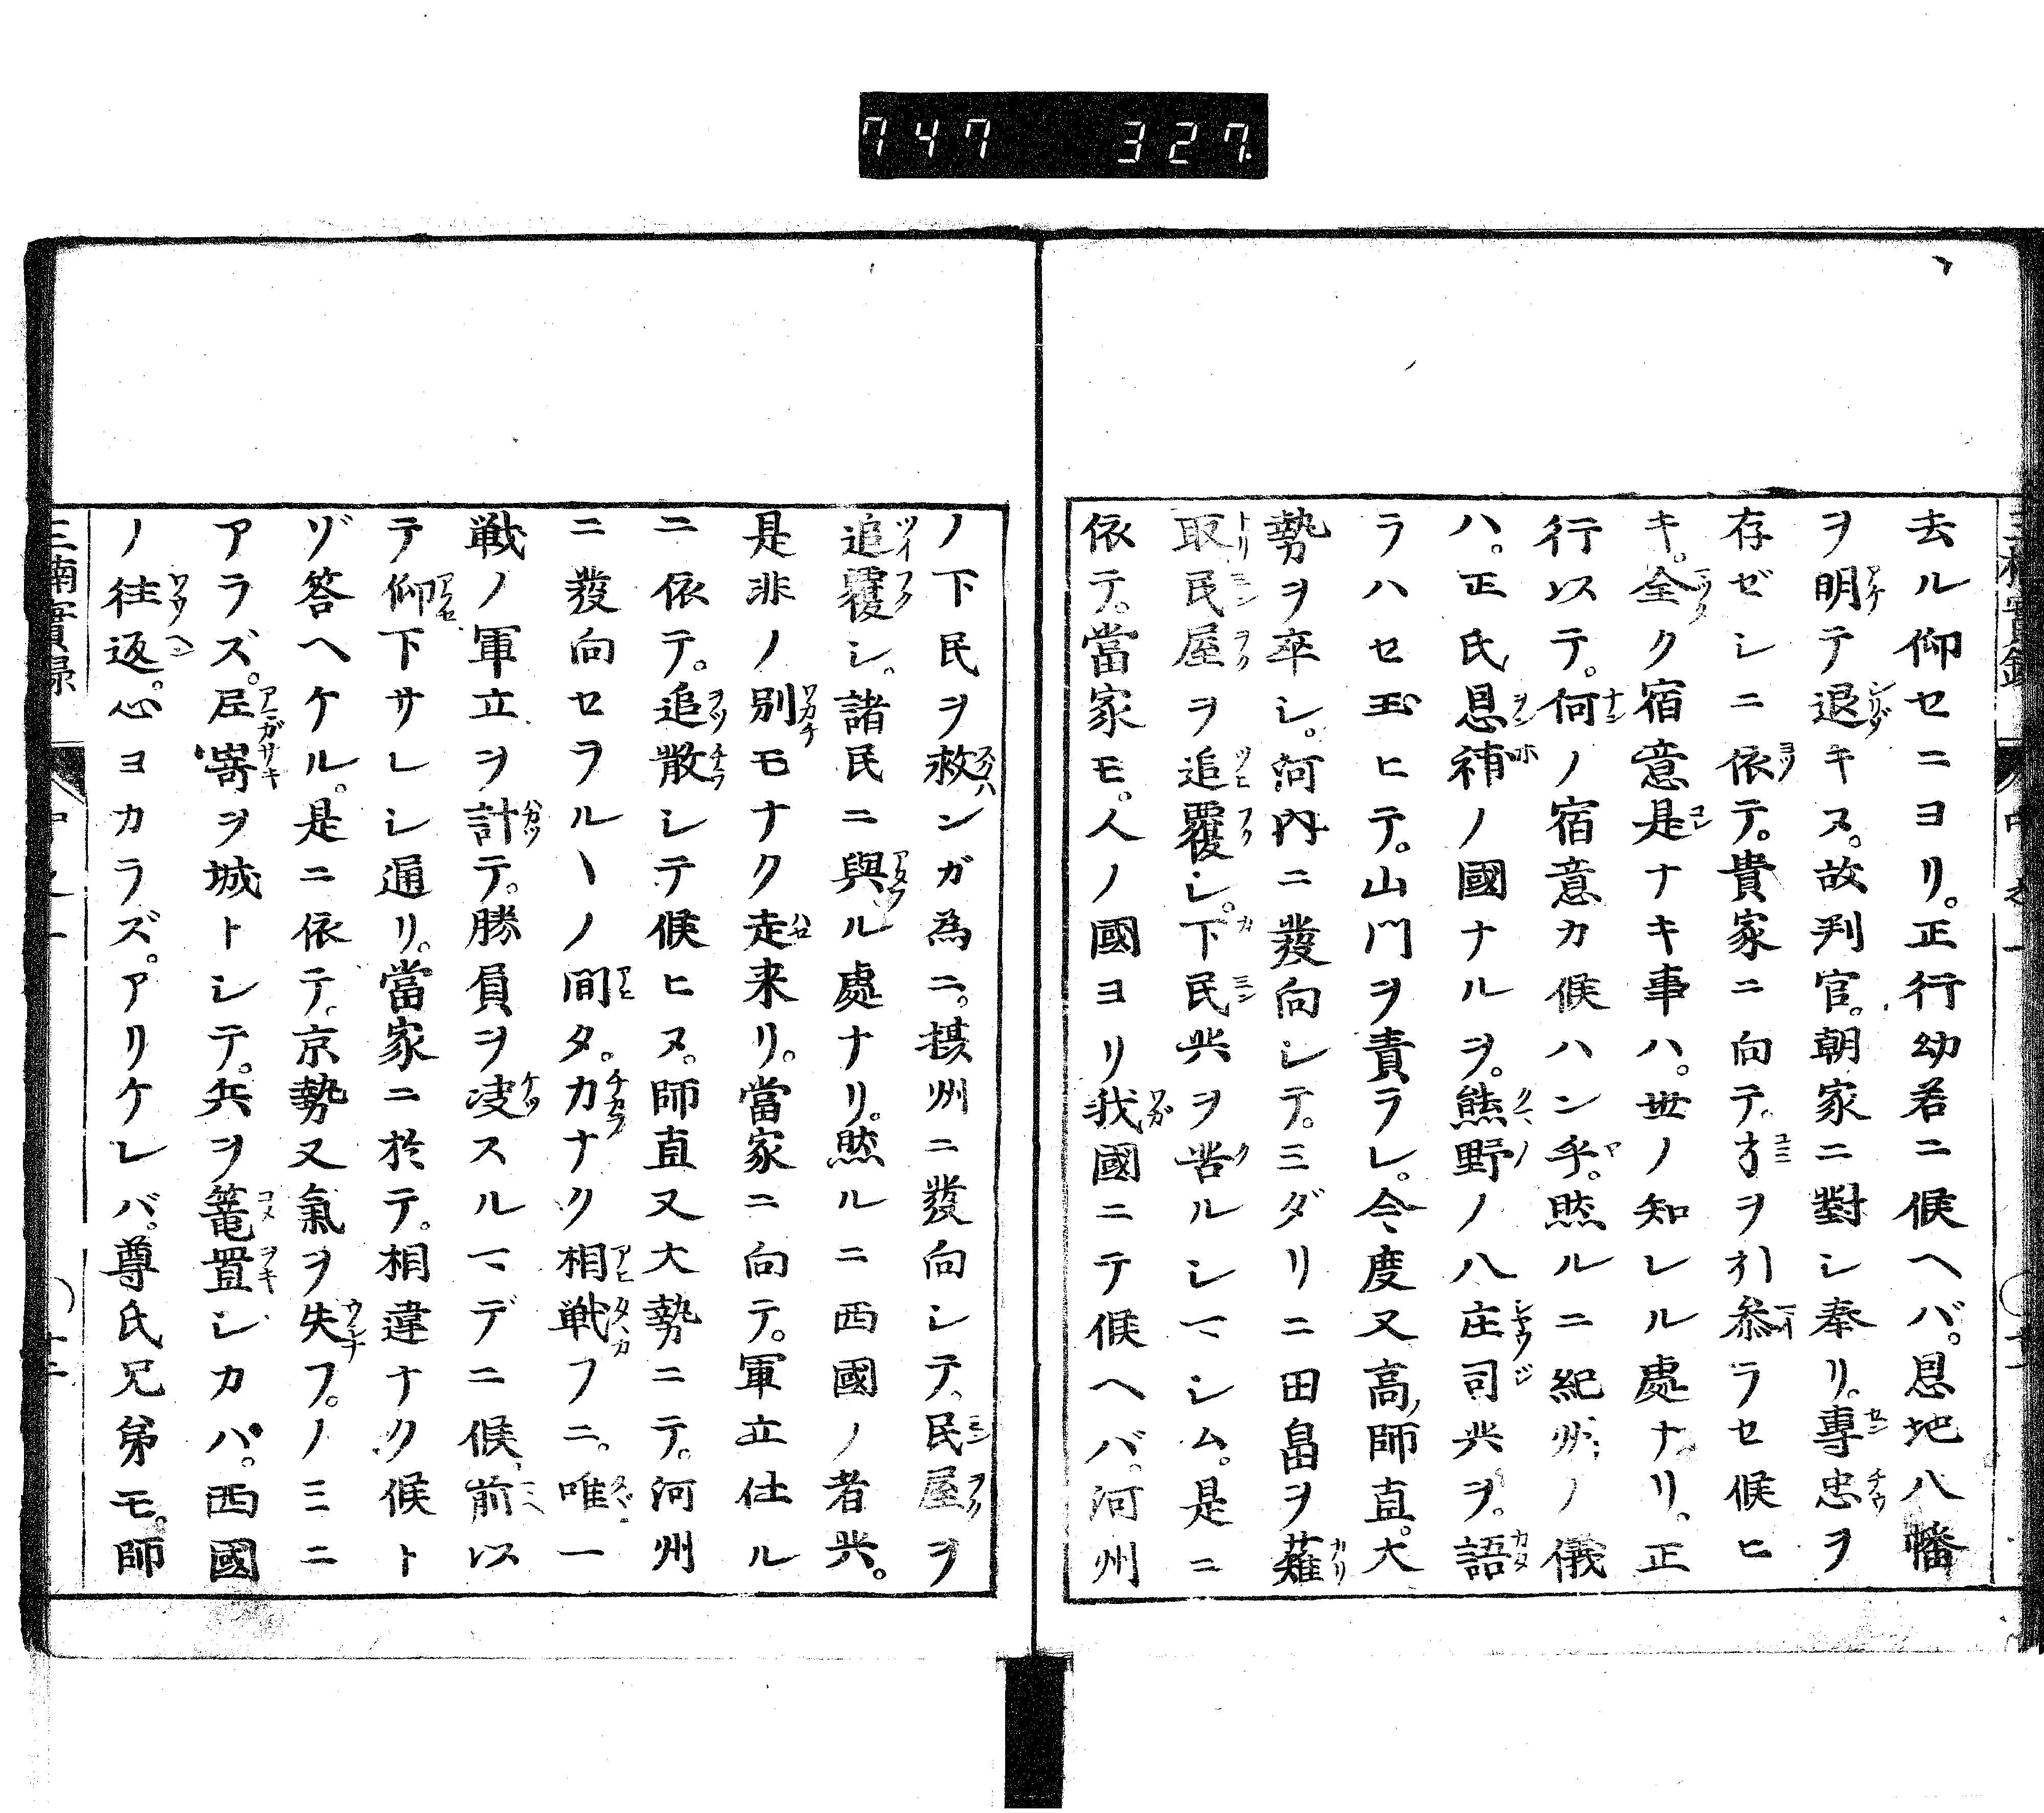 747 327
去ル仰セニヨリ。正行幼若ニ候ヘバ。息地八幡
ヲ明テ退キヌ。故判官。朝家ニ對シ奉リ。專忠ヲ
存ゼシニ依テ。貴家ニ向テ。弓ヲ引參ラセ候ヒ
キ。全ク宿意是ナキ事ハ。世ノ知レル處ナリ。正
行以テ。何ノ宿意カ候ハン乎。然ルニ紀州ノ儀
ハ。正氏息補ノ國ナルヲ。熊野ノ八庄司共ヲ。語
ラハセ玉ヒテ。山門ヲ責ラレ。今度又高師直。大
勢ヲ卒シ。河内ニ發向シテ。ミダリニ田畠ヲ薙
取民屋ヲ追覆シ。下民共ヲ苦ルシマシム。是ニ
依テ。當家モ。人ノ國ヨリ我國ニテ候ヘバ。河州
ノ下民ヲ救ンガ為ニ。摂州ニ發向シテ。民屋ヲ
追覆シ。諸民ニ與ル處ナリ。然ルニ西國ノ者共。
是非ノ別モナク走来リ。當家ニ向テ。軍立仕ル
ニ依テ。追散シテ候ヒヌ。師直又大勢ニテ。河州
ニ發向セラルヽノ間タ。力ナク相戦フニ。唯一
戦ノ軍立ヲ計テ。勝負ヲ决スルマデニ候。前以
テ仰下サレシ通リ。當家ニ於テ。相違ナク候ト
ゾ答ヘケル。是ニ依テ。京勢又氣ヲ失フ。ノミニ
アラズ。尼嵜ヲ城トシテ。兵ヲ篭置シカバ。西國
ノ往返。心ヨカラズ。アリケレバ。尊氏兄弟モ。師
三楠實録